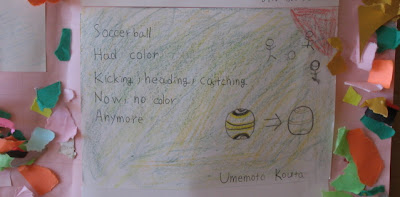 Soccerball
Had color
Kicking, heading, catching
Now, no color
Anymore
Umemoto Kouta